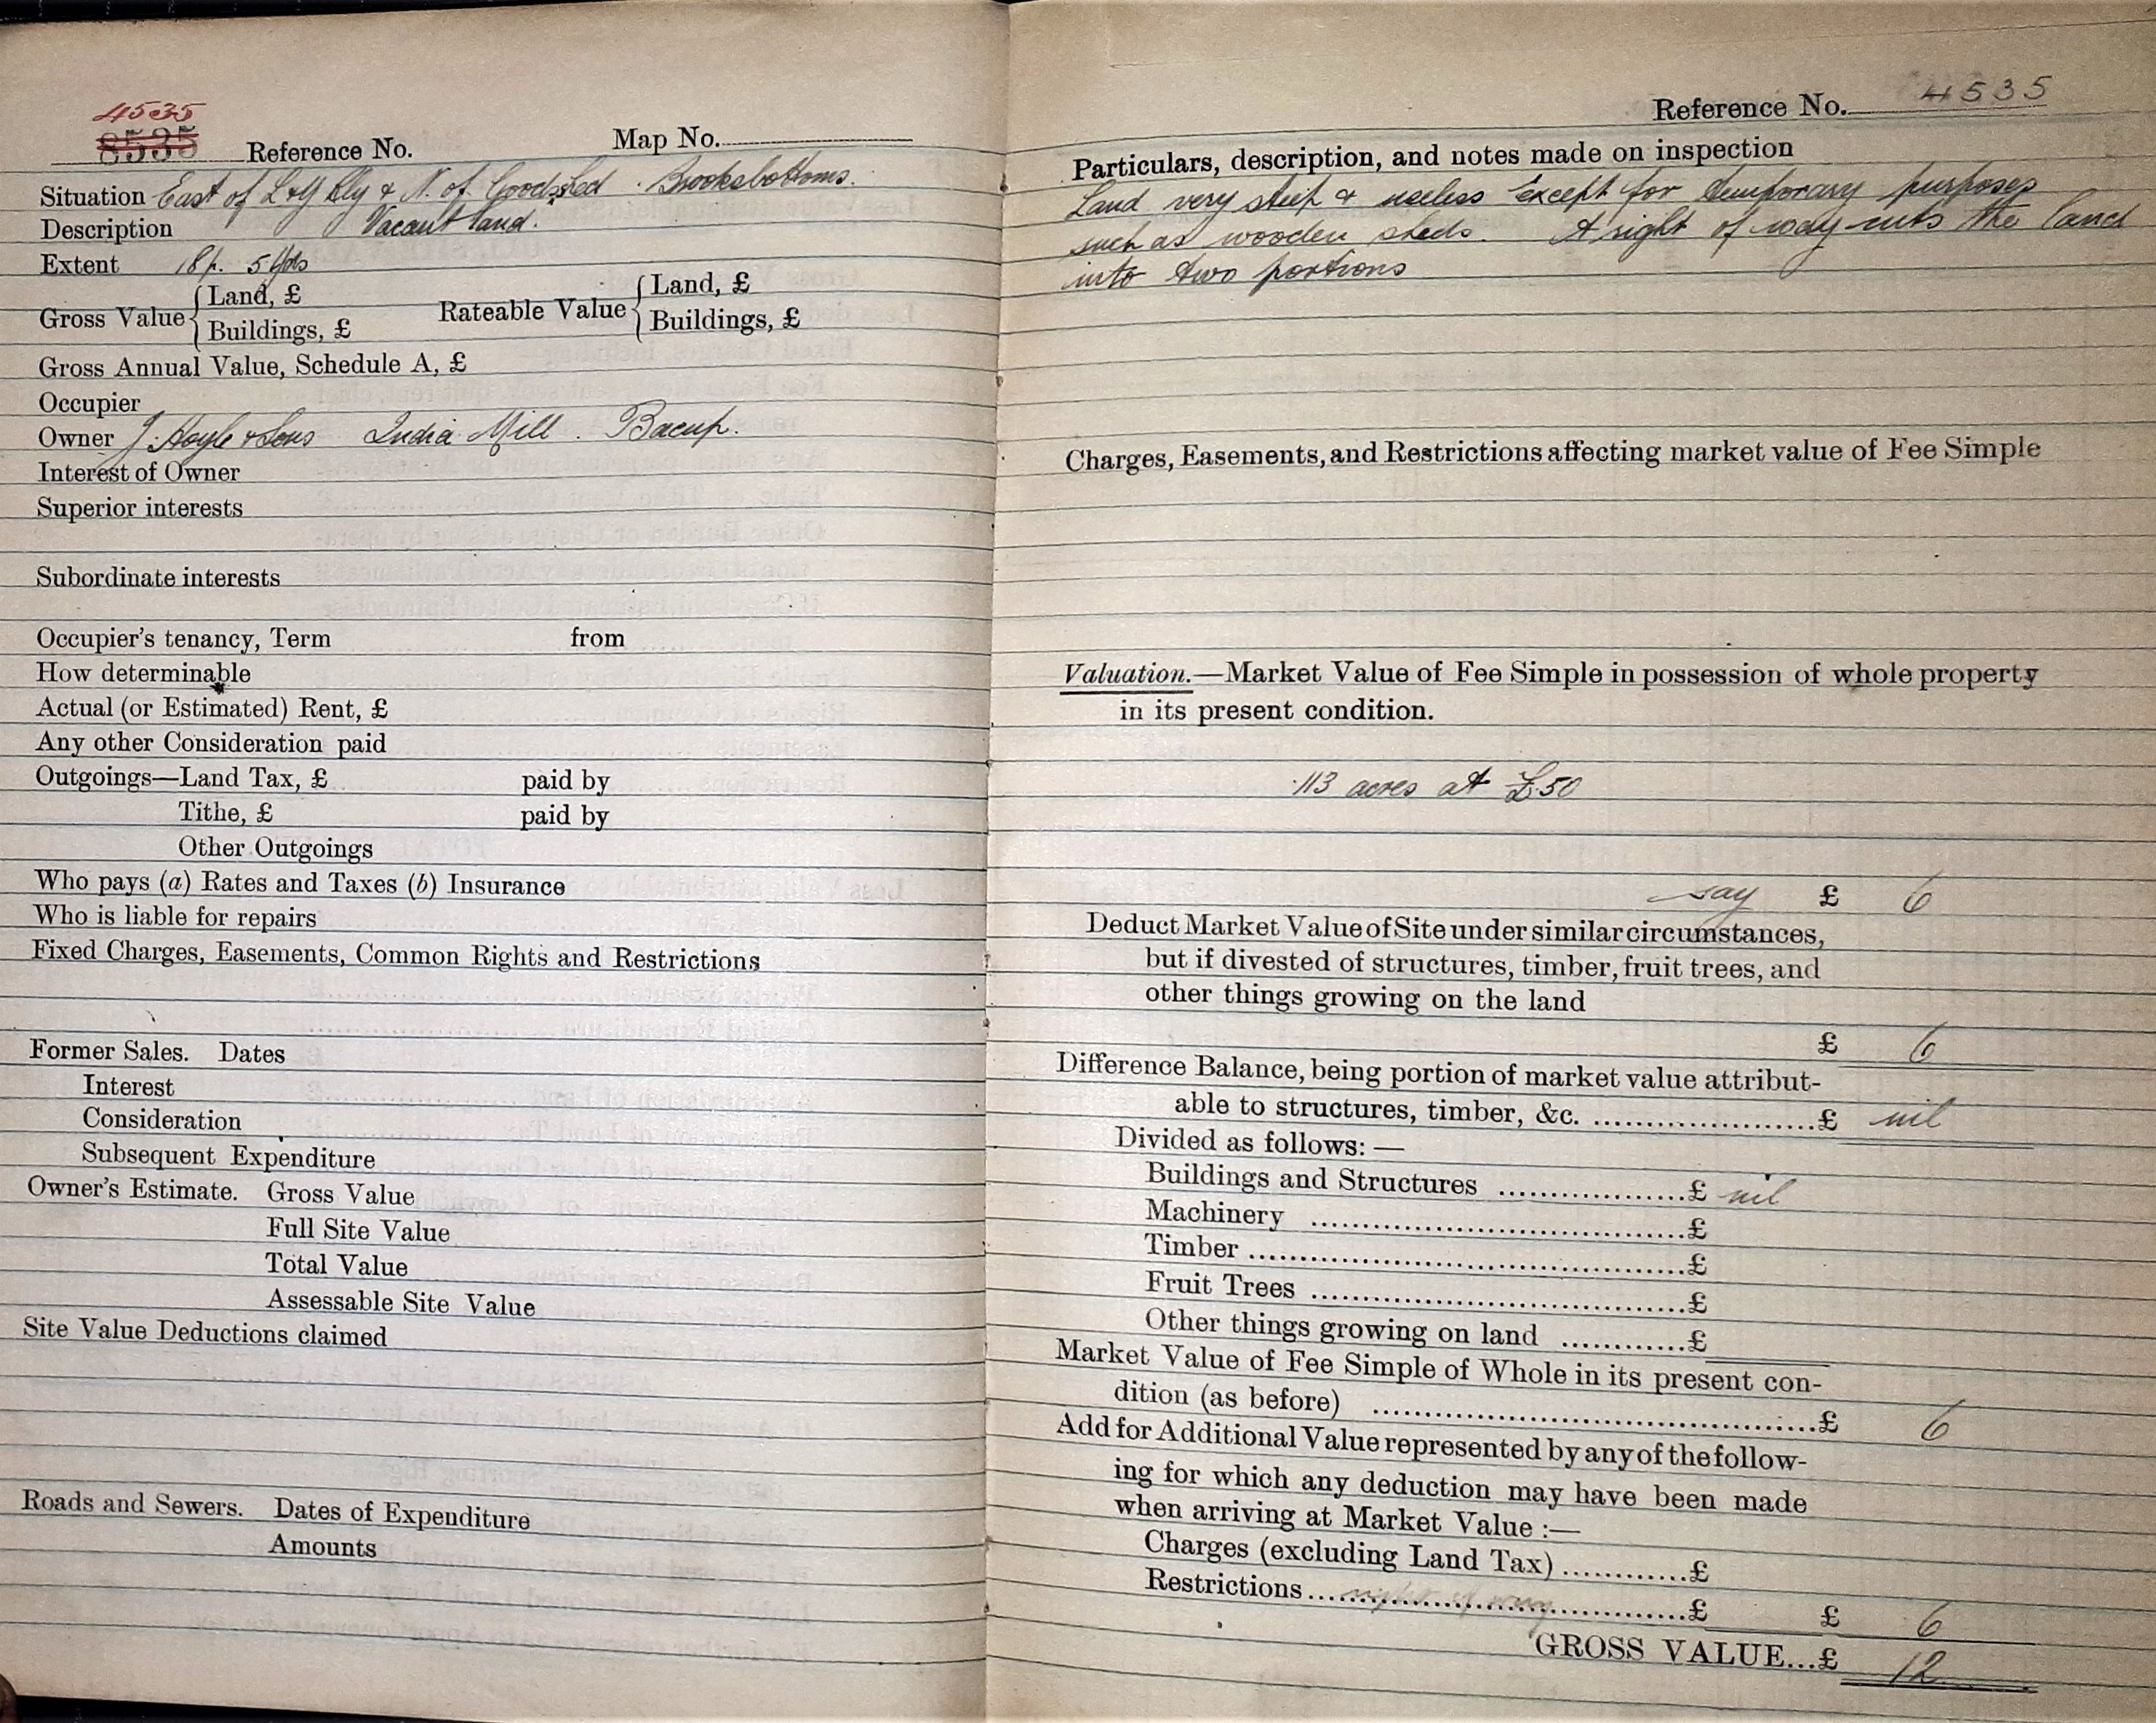 4535
8535 Reference No. Map No.
Situation East of L & Y Rly & N. of Goods Shed. Brooksbottoms.
Description Vacant land.
Extent 18 p. 5 Yds
Gross Value { Land, £ Rateable Value { Land, £
Buildings, £ Buildings, £
Gross Annual Value, Schedule A, £
Occupier
Owner J. Hoyle & Sons India Mill. Bacup.
Interest of Owner
Superior interests
Subordinate interests
Occupier's tenancy, Term from
How determinable
Actual (or Estimated) Rent, £
Any other Consideration paid
Outgoings—Land Tax, £ paid by
Tithe, £ paid by
Other Outgoings
Who pays (a) Rates and Taxes (b) Insurance
Who is liable for repairs
Fixed Charges, Easements, Common Rights and Restrictions
Former Sales. Dates
Interest
Consideration
Subsequent Expenditure
Owner's Estimate. Gross Value
Full Site Value
Total Value
Assessable Site Value
Site Value Deductions claimed
Roads and Sewers. Dates of Expenditure
Amounts
Reference No. 4535
Particulars, description, and notes made on inspection
Land very steep & useless except for temporary purposes
such as wooden sheds. A right of way cuts the land
into two portions
Charges, Easements, and Restrictions affecting market value of Fee Simple
Valuation.—Market Value of Fee Simple in possession of whole property
in its present condition.
·113 acres at £50
say £ 6
Deduct Market Value of Site under similar circumstances,
but if divested of structures, timber, fruit trees, and
other things growing on the land
£ 6
Difference Balance, being portion of market value attribut-
able to structures, timber, &c. ......................£ nil
Divided as follows:—
Buildings and Structures ..................£ nil
Machinery ....................................£
Timber ..........................................£
Fruit Trees ....................................£
Other things growing on land ............£
Market Value of Fee Simple of Whole in its present con-
dition (as before) ..........................................£ 6
Add for Additional Value represented by any of the follow-
ing for which any deduction may have been made
when arriving at Market Value :—
Charges (excluding Land Tax) ............£
Restrictions... right of way ...............£ £ 6
GROSS VALUE...£ 12